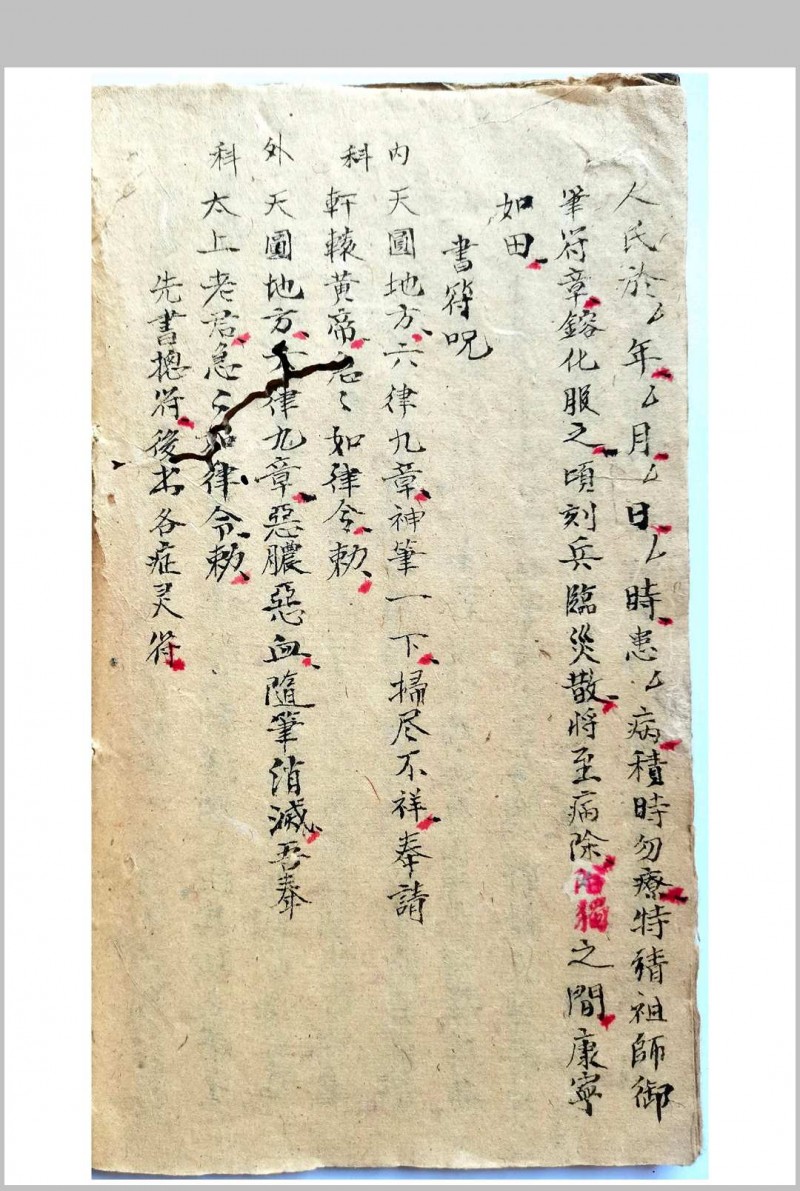 人民於厶年厶月厶日厶時患厶病積時勿療特請祖師御
筆符章鎔化服之頃刻兵臨災散將至病除獨之間康寧
如田
書符呪
內天圓地方六律九章神筆一下掃尽不祥奉請
科軒轅黃帝急〻如律令勅
外天圓地方六律九章惡膿惡血隨筆消滅吾奉
科太上老君急〻如律令勅
先書摠符後書各症灵符